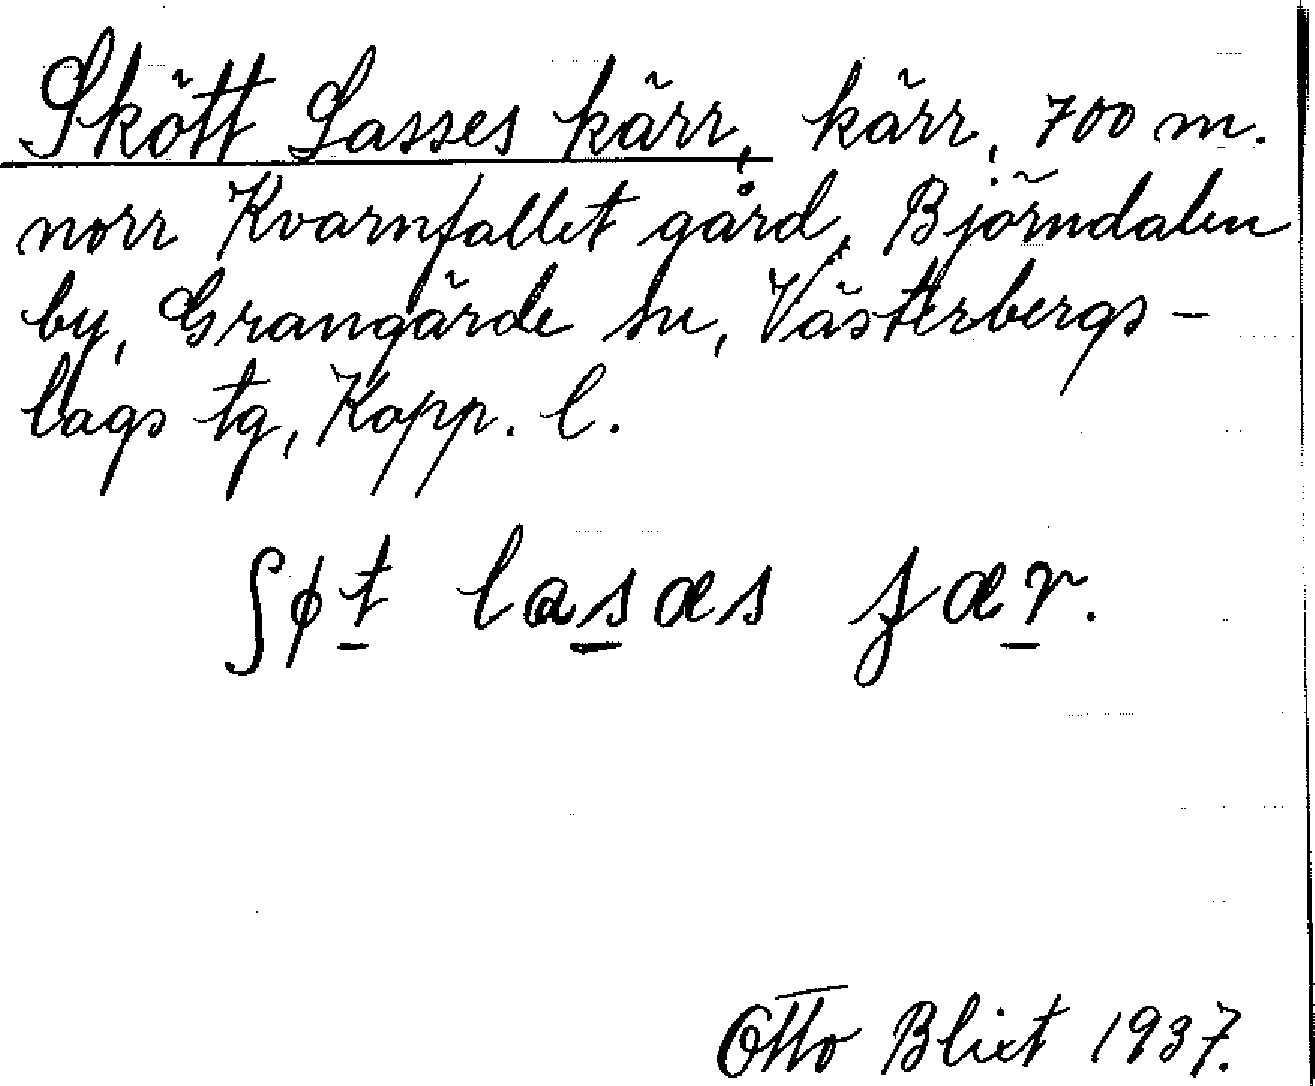 Skött Lasses kärr, kärr, 700 m.
norr Kvarnfallet gård, Björndalen
by, Grangärde sn, Västerbergs-
lags tg, Kopp. l.
ʃɸt̲ las̲æs ʝær̲.
Otto Blixt 1937.